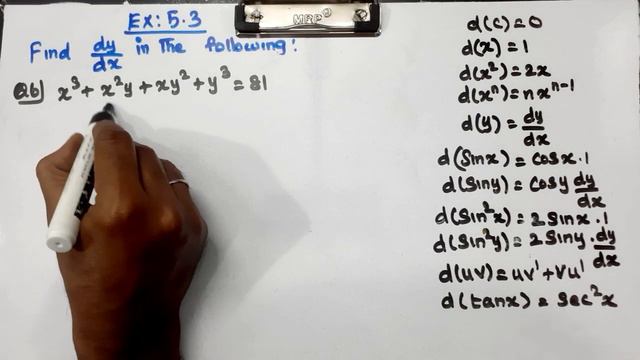 Ex: 5.3
MRP
Find dy/dx in The following:
Q6) x³ + x²y + xy² + y³ = 81
d(c) = 0
d(x) = 1
d(x²) = 2x
d(xⁿ) = nxⁿ⁻¹
d(y) = dy/dx
d(sinx) = cosx.1
d(siny) = cosy dy/dx
d(sin²x) = 2sinx.1
d(sin²y) = 2siny.dy/dx
d(uv) = uv' + vu'
d(tanx) = sec²x